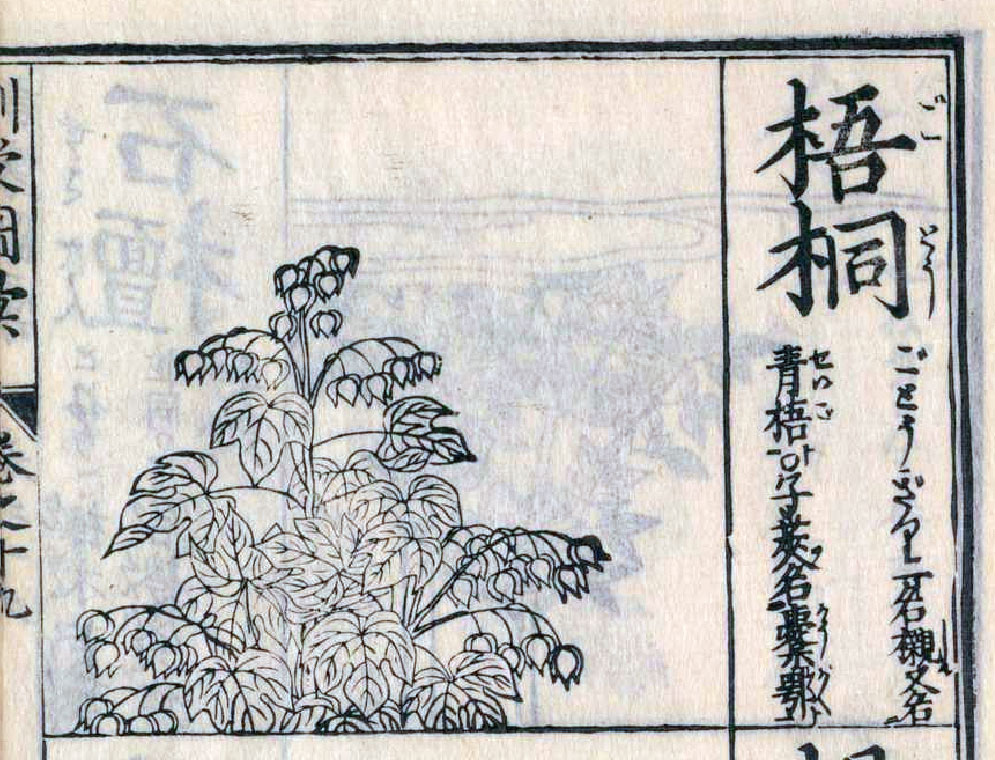 梧桐
ごとう
ごとうぎり
一名櫬又名
青梧
せいご
子莢名
橐鄂
訓蒙圖彙
巻之十九